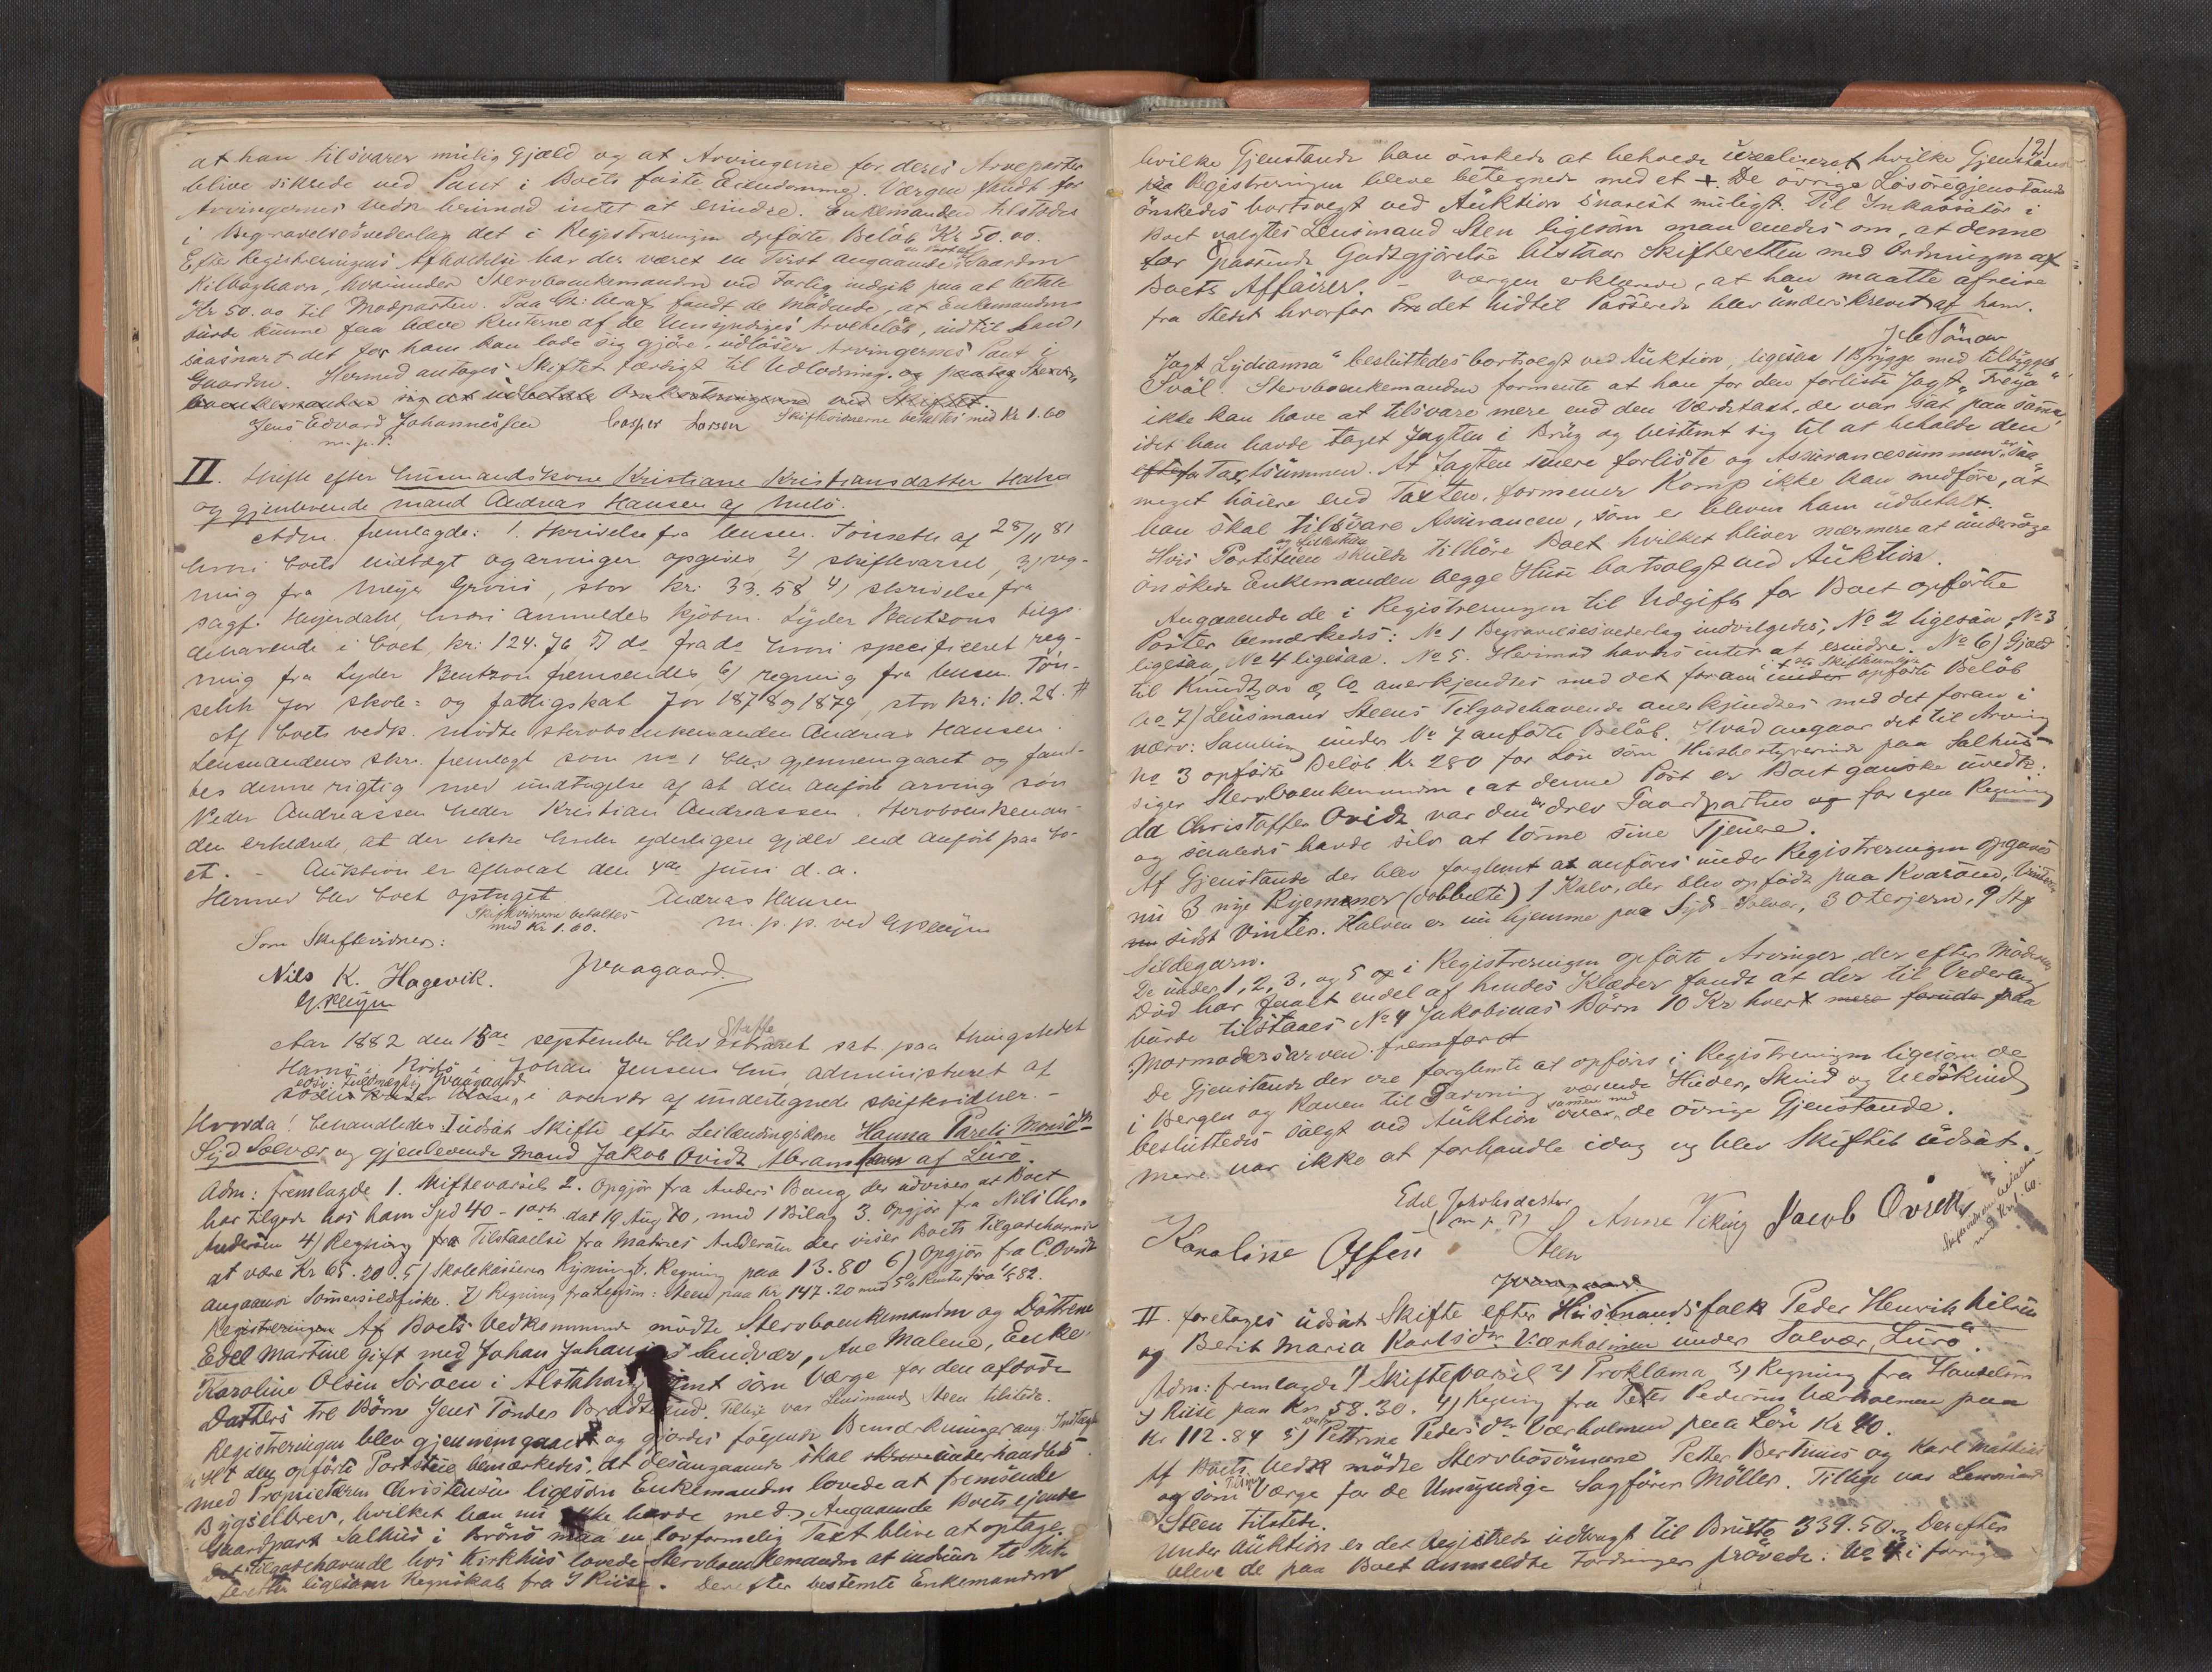 at han tilsvarer mulig Gjæld og at Arvingerne for deres Arveparter
blive sikrede ved Pant i Boets faste Eiendomme. Værgen fandt for
Arvingernes Vedk. herimod intet at erindre. Enkemanden tilstodes
i Begravelsesvederlag det i Registreringen opførte Beløb Kr 50.00.
Efter Registreringens Afholdelse har der været en Tvist angaaende Gaarden
Kilboghavn, hvorunder Stervboenkemanden ved Forlig indgik paa at betale
Kr 50.00 til Modparten. Paa Gr: heraf fandt de Mødende, at Enkemanden
burde kunne faa hæve Renterne af de Umyndiges Arvebeløb, indtil han,
saasnart det for ham kan lade sig gjøre, udløser Arvingernes Pant i
Gaarden. Hermed antages Skiftet færdigt til Udlodning. og paatog Stervbo-
boenkemanden sig at udbetale Omkostningerne ved Skiftet.
Jens Edvard Johannessen Casper Larsen Skiftevidnerne betaltes med Kr 1.60
m. p. P.
II. Skifte efter husmandskone Kristiane Kristiansdatter
og gjenlevende mand Andreas Hansen af
Adm. fremlagde: 1. Skrivelse fra lensm. Tønseth af 28/11 81
hvori boets indbragt og arvinger opgives, 2) skiftevarsel, 3) reg-
ning fra Meyer Grønis, stor kr: 33.58 4) skrivelse fra
sagf. Heyerdahl, hvori anmeldes kjøbm. Lyder Bentzons tilgo-
dehavende i boet, kr: 124.76 5) do fra do hvori specificeret reg-
ning fra Lyder Bentzon fremsendes, 6) regning fra lensm. Tøn-
seth for skole- og fattigskat for 1878 og 1879, stor kr: 10.28.
Af boets vedk. mødte stervboenkemanden Andreas Hansen.
Lensmandens skr. fremlagt som no 1 blev gjennemgaaet og fand-
tes denne rigtig med undtagelse af at den anførte arving søn
Peder Andreassen heder Kristian Andreassen. Stervboenkeman-
den erklærede, at der ikke hviler yderligere gjæld end anført paa bo-
et. - Auktion er afholdt den 4de Juni d. a.
Hermed blev boet optaget Andreas Hansen
Skiftevidnerne betaltes
med Kr 1.60. m. p. p. ved
Som Skiftevidner:
Nils K. Hagevik. Jvaagaard

Aar 1882 den 15de september blev extraret sat paa thingstedet
i Johan Jensens hus administreret af
edsv: Fuldmægtig Jvaagaard
i overvær af undertegnede skiftevidner. -
Hvorda! behandledes I udsat Skifte efter Leilændingskone Hanna Pareli Monsdtr
Syd Solvær og gjenlevende Mand Jakob Ovidt Abramsen af Lurø.
Adm: fremlagde 1. Skiftevarsel 2. Opgjør fra Anders Baug, der udviser at Boet
har tilgode hos ham Spd 40 - 1 ort dat 19 Aug 80, med 1 Bilag 3. Opgjør fra Nils Chr.
Andersen 4) Regning fra Tilstaaelse fra Matires Andersen der viser Boets Tilgodehavende
at være Kr 65.20. 5) Skolekasserer Regning paa 13.80 6) Opgjør fra C. Ovidt
angaaende Sommersildfiske. 7) Regning fra Lensm: Steen paa Kr 147.20 med 5% Rente fra 82.
Registreringen Af Boets Vedkommende mødte Stervboenkemanden og Døttrene
Edel Martine gift med Johan Johan Sandvær, Ane Malene, Enke
Karoline Olsen Sørøen i Alstahaug samt som Værge for den afdøde
Datters tre Børn Jens Tønder Brodtsund. Tillige var Lensmand Steen tilstede.
Registreringen blev gjennemgaaet og gjordes følgende Bemærkninger ang. Indtægt
i Alt den opførte Partstue bemærkedes, at desangaaende skal underhandles
med Proprietæren Christensen ligesom Enkemanden lovede at fremsende
Bygselbrev, hvilket han nu ikke havde med. Angaaende Boets ejende
Gaardpart Salhus i Brønø maa en lovformelig Taxt blive at optage.
Det Tilgodehavende hos Kirkhus lovede Stervboenkemanden at indsende til
ligesom Regnskab fra J Riise. Derefter bestemte Enkemanden
121
hvilke Gjenstande han ønskede at beholde urealiseret hvilke Gjenstande
fra Registreringen bleve betegnede med et +. De øvrige Løsøregjenstande
ønskedes bortsolgt ved Auktion snarest muligt. Til Inkassator i
Boet valgtes Lensmand Sten ligesom man enedes om, at denne
for passende Godtgjørelse bistaar Skifteretten med Ordningen af
Boets Affairer. - Værgen erklærede, at han maatte afreise
fra Stedet hvorfor det hidtil Passerede blev underskrevet af ham.
J C Tönder
Jagt „Lydianna" besluttedes bortsolgt ved Auktion, ligesaa 1 Brygge med tilbygget
Svål. Stervboenkemanden formente at han for den forliste Jagt „Freya"
ikke kan have at tilsvare mere end den Værdtaxt, der var sat paa samme,
idet han havde taget Jagten i Brug og bestemt sig til at beholde den
Taxtsummen. At Jagten senere forliste og Assurancesummen er saa
meget høiere end Taxten, formener Komp ikke kan medføre, at
han skal tilsvare Assurancen, som er bleven ham udbetalt.
Hvis Partstuen skulde tilhøre Boet hvilket bliver nærmere at undersøge
ønskede Enkemanden begge Huse bortsolgt ved Auktion.
Angaaende de i Registreringen til Udgift for Boet opførte
Poster bemærkedes: No 1 Begravelsesvederlag indvilgedes; No 2 ligesaa, No 3
ligesaa, No 4 ligesaa. No 5. Herimod havdes intet at erindre. No 6) Gjæld
til Knudtzon & Co anerkjendtes med det foran i opførte Beløb
No 7) Lensmand Steens Tilgodehavende anerkjendtes med det foran i
nærv: Samling under No 7 anførte Beløb. Hvad angaar det til Arving
No 3 opførte Beløb Kr 280 for Løn som Husbestyrerinde paa Salhus-
siger Stervboenkemanden, at denne Post er Boet ganske uvedk:
da Christoffer Ovidt var den der drev Gaardparten for egen Regning
og saaledes havde selv at lønne sine Tjenere.
Af Gjenstande der blev forglemt at anføres under Registreringen opgaves
nu 3 nye Ryemener (dobbelte) 1 Kalv, der blev opfødt paa Kvarøen, Vinteren
sidst Vinter. Kalven er nu hjemme paa Syd-Solvær, 3 Oterjern, 9 Stk
Sildegarn.
De under 1, 2, 3, og 5 i Registreringen opførte Arvinger der efter Moderens
Død har faaet endel af hendes Klæder fandt at der til Vederlag
burde tilstaaes No 4 Jakobinas Børn 10 Kr hver mere forud paa
Mormodersarven fremfor
De Gjenstande der ere forglemte at opføres i Registreringen ligesom de
i Bergen og Ranen til Garvning værende Huder, Skind og Uldskind
besluttedes solgt ved Auktion sammen med de øvrige Gjenstande.
Mere var ikke at forhandle idag og blev Skiftet udsat.
Edel Jakobsdatter
(m. p. P.) Anne Viking Jacob Ovidth
Karoline Olsen Steen
Jvaagaard
II. foretages udsat Skifte efter Husmandsfolk Peder Henrik Nilsen
og Berit Maria Karlsdtr Værholmen under Solvær, Lurø.
Adm: fremlagde 1) Skiftevarsel 2) Proklama 3) Regning fra Handelsm
J Riise paa Kr 58.30. 4) Regning fra Peter Pedersen Værholmen paa
Kr 112.84 5) Pettrine Pedersdtr Værholmen paa Løn Kr 40.
Af Boets Vedk mødte Stervbosønnerne Petter Bertinus og Karl Mathias
og som Værge for de Umyndige Sagfører Möller. Tillige var Lensmand
Steen tilstede.
Under Auktion er det Registrede indbragt til Brutto 339.50. Derefter
bleve de paa Boet anmeldte Fordringer prøvede: No 1 i forrige